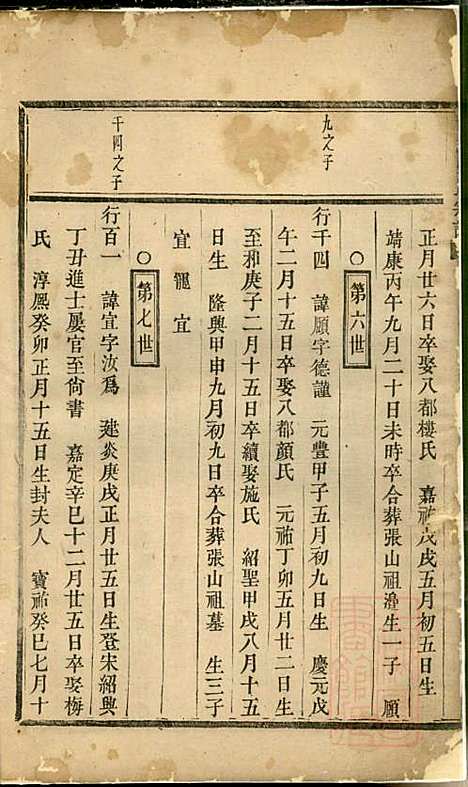 正月廿六日卒娶八都樓氏　嘉祐戊戌五月初五日生
靖康丙午九月二十日未時卒合葬張山祖邉生一子　願
○第六世
九之子
行千四　諱願字德謹　元豐甲子五月初九日生　慶元戊
午二月十五日卒娶八都顔氏　元祐丁卯五月廿二日生
至邢庚子二月十五日卒續娶施氏　紹聖甲戌八月十五
日生　隆興甲申九月初九日卒合葬張山祖墓　生三子
宜　寵　宜
○第七世
千四之子
行百一　諱宜字汝爲　建炎庚戌正月廿五日生登宋紹興
丁丑進士屢官至尙書　嘉定辛巳十二月廿五日卒娶梅
氏　淳熈癸卯正月十五日生封夫人　寳祐癸巳七月十